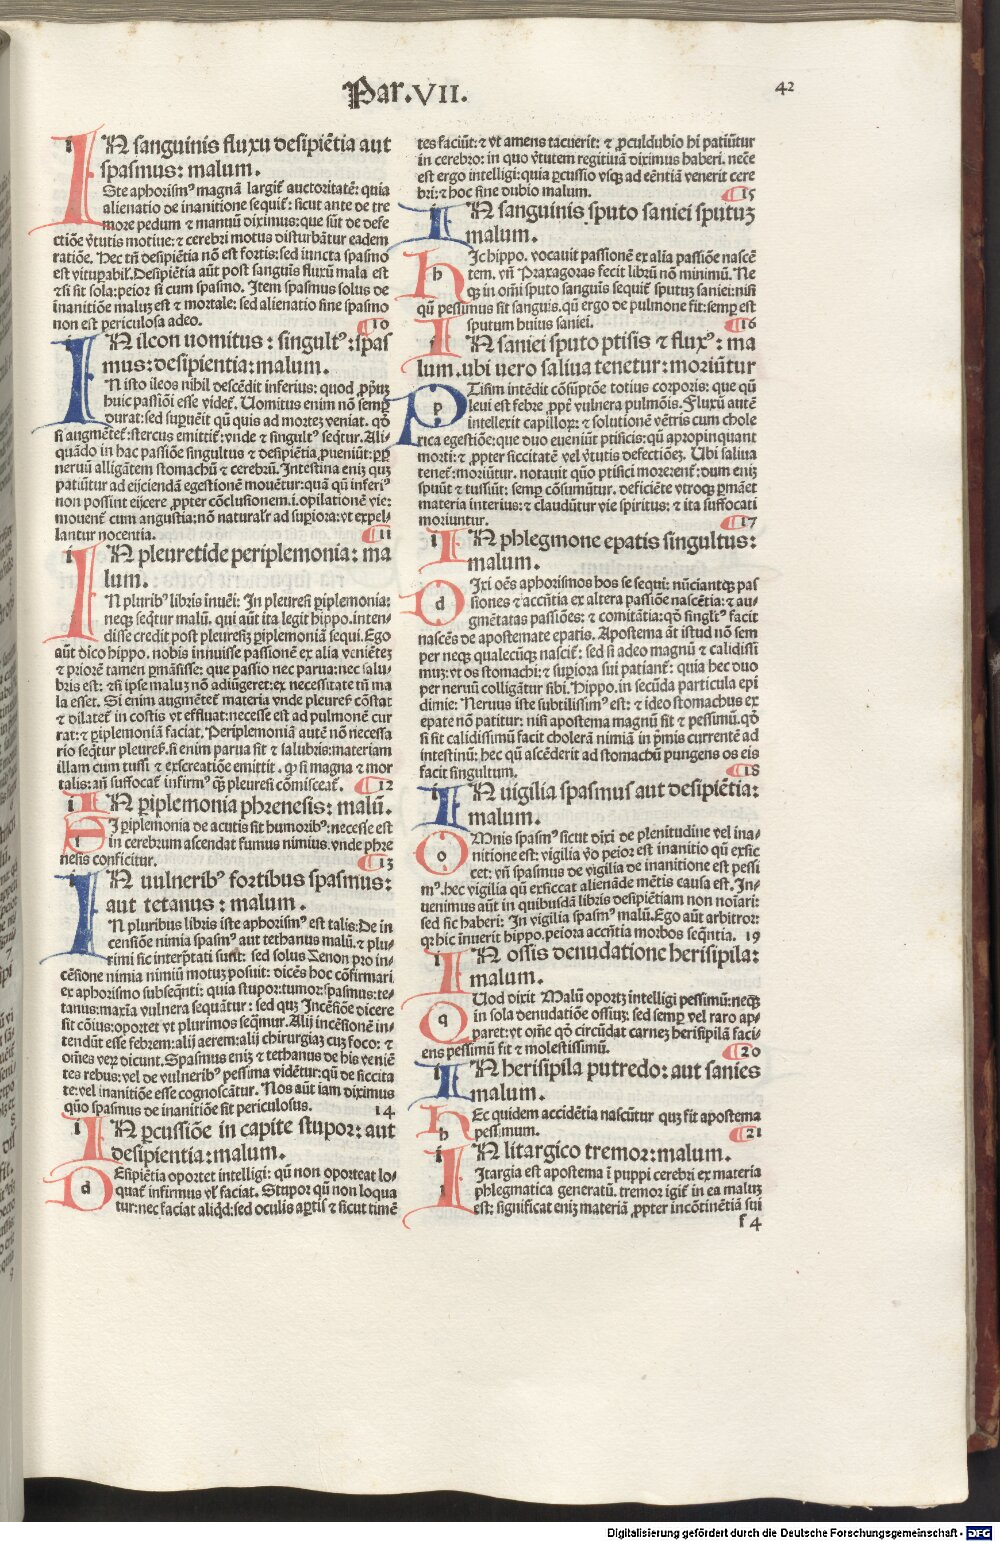 Par.VII.
42
IN sanguinis fluxu desipiẽtia aut
spasmus: malum.
Ste aphorismꝰ magnã largit̃ auctoritatẽ: quia
alienatio de inanitione sequit̃: sicut ante de tre
more pedum ⁊ manuũ diximus: que sũt de defe
ctiõe v̾tutis motiue: ⁊ cerebri motus disturbãtur eadem
ratiõe. Hec tñ desipiẽtia nõ est fortis: sed iuncta spasmo
est vituꝑabil'. Desipiẽtia aũt post sanguis fluxũ mala est
⁊ si sit sola: peior si cum spasmo. Item spasmus solus de
inanitiõe maluȝ est ⁊ mortale: sed alienatio sine spasmo
non est periculosa adeo. 10
IN ilcon uomitus: singultꝰ: spas
mus: desipientia: malum.
N isto ileos nihil descẽdit inferius: quod ꝓpriuȝ
huic passiõi esse videt̃. Uomitus enim nõ semꝑ
durat: sed supuẽit qũ quis ad morteȝ veniat. qð
si augmẽtet̃: stercus emittit̃: vnde ⁊ singultꝰ seq̃tur. Ali-
quãdo in hac passiõe singultus ⁊ desipiẽtia ꝓueniũt: ꝓpꝑ
neruũ alligãtem stomachũ ⁊ cerebrũ. Intestina eniȝ quȝ
patiũtur ad eijciendã egestionẽ mouẽtur: quã qũ inferiꝰ
non possint eijcere ꝓpter cõclusionem .i. opilationẽ vie:
mouent̃ cum angustia: nõ naturalr̃ ad suꝑiora: vt expel-
lantur nocentia. 11
IN pleuretide periplemonia: ma
lum.
N pluribꝰ libris inuẽi: In pleuresi ꝑiplemonia:
neqȝ seq̃tur malũ. qui aũt ita legit hippo. inten-
disse credit post pleuresȝ ꝑiplemoniã sequi. Ego
aũt dico hippo. nobis innuisse passionẽ ex alia veniẽteȝ
⁊ priorẽ tamen ꝑmãsisse: que passio nec parua: nec salu-
bris est: ⁊ si ipse maluȝ nõ adiũgeret: ex necessitate tñ ma
la esset. Si enim augmẽtet̃ materia vnde pleures̃ cõstat
⁊ dilatet̃ in costis vt effluat: necesse est ad pulmonẽ cur
rat: ⁊ ꝑiplemoniã faciat. Periplemoniã autẽ nõ necessa
rio seq̃tur pleures̃. si enim parua sit ⁊ salubris: materiam
illam cum tussi ⁊ exscreatiõe emittit. ꝙ si magna ⁊ mor
talis: añ suffocat̃ infirmꝰ qȝ pleuresi cõmisceat̃. 12
IN ꝑiplemonia phrenesis: malũ.
I ꝑiplemonia de acutis sit humoribꝰ: necesse est
in cerebrum ascendat fumus nimius. vnde phre
nesis conficitur. 13
IN uulneribꝰ fortibus spasmus:
aut tetanus: malum.
N pluribus libris iste aphorismꝰ est talis: De in
censiõe nimia spasmꝰ aut tethanus malũ. ⁊ plu-
rimi sic interp̃tati sunt: sed solus Zenon pro in-
cẽsione nimia nimiũ motuȝ posuit: dicẽs hoc cõfirmari
ex aphorismo subseq̃nti: quia stupor: tumor: spasmus: te-
tanus: maxĩa vulnera sequãtur: sed quȝ Incẽsiõe dicere
sit cõius: oportet vt plurimos seq̃mur. Alij incẽsionẽ in-
tendũt esse febrem: alij aerem: alij chirurgiaȝ cuȝ foco: ⁊
oẽs veꝝ dicunt. Spasmus eniȝ ⁊ tethanus de his veniẽ
tes rebus: vel de vulneribꝰ pessima vidẽtur: qũ de siccita
te: vel inanitiõe esse cognoscãtur. Nos aũt iam diximus
quõ spasmus de inanitiõe sit periculosus. 14
IN ꝑcussiõe in capite stupor: aut
desipientia: malum.
Esipiẽtia oportet intelligi: qũ non oporteat lo-
quat̃ infirmus vl' faciat. Stupor qũ non loqua
tur: nec faciat aliqd: sed oculis aꝑtis ⁊ sicut timẽ
tes faciũt: ⁊ vt amens tacuerit: ⁊ ꝓculdubio hi patiũtur
in cerebro: in quo v̾tutem regitiuã diximus haberi. necẽ
est ergo intelligi: quia ꝑcussio vsqȝ ad eẽntiã venerit cere
bri: ⁊ hoc sine dubio malum. 15
IN sanguinis sputo saniei sputuȝ
malum.
Ic hippo. vocauit passionẽ ex alia passiõe nascẽ
tem. vñ Praxagoras fecit librũ nõ minimũ. Ne
qȝ in oĩ sputo sanguis sequit̃ sputuȝ saniei: nisi
qũ pessimus sit sanguis. qũ ergo de pulmone sit: semꝑ est
sputum huius saniei. 16
IN saniei sputo ptisis ⁊ fluxꝰ: ma
lum. ubi uero saliua tenetur: moriũtur
Tisim intẽdit cõsũptõe totius corporis: que qũ
leui est febre ꝓpt̃ vulnera pulmõis. Fluxũ autẽ
intellexit capilloꝝ: ⁊ solutionẽ vẽtris cum chole
rica egestiõe: que duo eueniũt ptisicis: qũ apropinquant
morti: ⁊ ꝓpter siccitatẽ vel v̾tutis defectiõeȝ. Ubi saliua
tenet̃: moriũtur. notauit quõ ptisici morerent̃: dum eniȝ
spuũt ⁊ tussiũt: semꝑ cõsumũtur. deficiẽte vtroqȝ ꝑmãet
materia interius: ⁊ claudũtur vie spiritus: ⁊ ita suffocati
moriuntur. 17
IN phlegmone epatis singultus:
malum.
Ixi oẽs aphorismos hos se sequi: nũciantqȝ pas
siones ⁊ accñtia ex altera passiõe nascẽtia: ⁊ au-
gmẽtatas passiões: ⁊ comitãtia: qð singl'tꝰ facit
nascẽs de apostemate epatis. Apostema ãt istud nõ sem
per neqȝ qualecũqȝ nascit̃: sed si adeo magnũ ⁊ calidissi
muȝ: vt os stomachi: ⁊ suꝑiora sui patiant̃: quia hec duo
per neruũ colligãtur sibi. Hippo. in secũda particula epi
dimie: Neruus iste subtilissimꝰ est: ⁊ ideo stomachus ex
epate nõ patitur: nisi apostema magnũ sit ⁊ pessimũ. qð
si sit calidissimũ facit cholerã nimiã in p̃mis currentẽ ad
intestinũ: hec qũ ascẽderit ad stomachũ pungens os eis
facit singultum. 18
IN uigilia spasmus aut desipiẽtia:
malum.
Mnis spasmꝰ sicut dixi de plenitudine vel ina-
nitione est: vigilia v̾o peior est inanitio qũ exsic
cet: vñ spasmus de vigilia de inanitione est pessi
mꝰ. hec vigilia qũ exsiccat alienãde mẽtis causa est. In-
uenimus aũt in quibusdã libris desipiẽtiam non noĩari:
sed sic haberi: In vigilia spasmꝰ malũ. Ego aũt arbitror:
qꝛ hic inuerit hippo. peiora accñtia morbos seq̃ntia. 19
IN ossis denudatione herisipila:
malum.
Uod dixit Malũ oportȝ intelligi pessimũ: neqȝ
in sola denudatiõe ossiuȝ: sed semꝑ vel raro ap-
paret: vt oẽ qð circũdat carneȝ herisipilã faci-
ens pessimũ sit ⁊ molestissimũ. 20
IN herisipila putredo: aut sanies
malum.
Ec quidem accidẽtia nascũtur quȝ sit apostema
pessimum. 21
IN litargico tremor: malum.
Itargia est apostema ĩ puppi cerebri ex materia
phlegmatica generatũ. tremor igit̃ in ea maluȝ
est: significat eniȝ materiã ꝓpter incõtinẽtiã sui
f 4
Digitalisierung gefördert durch die Deutsche Forschungsgemeinschaft - DFG